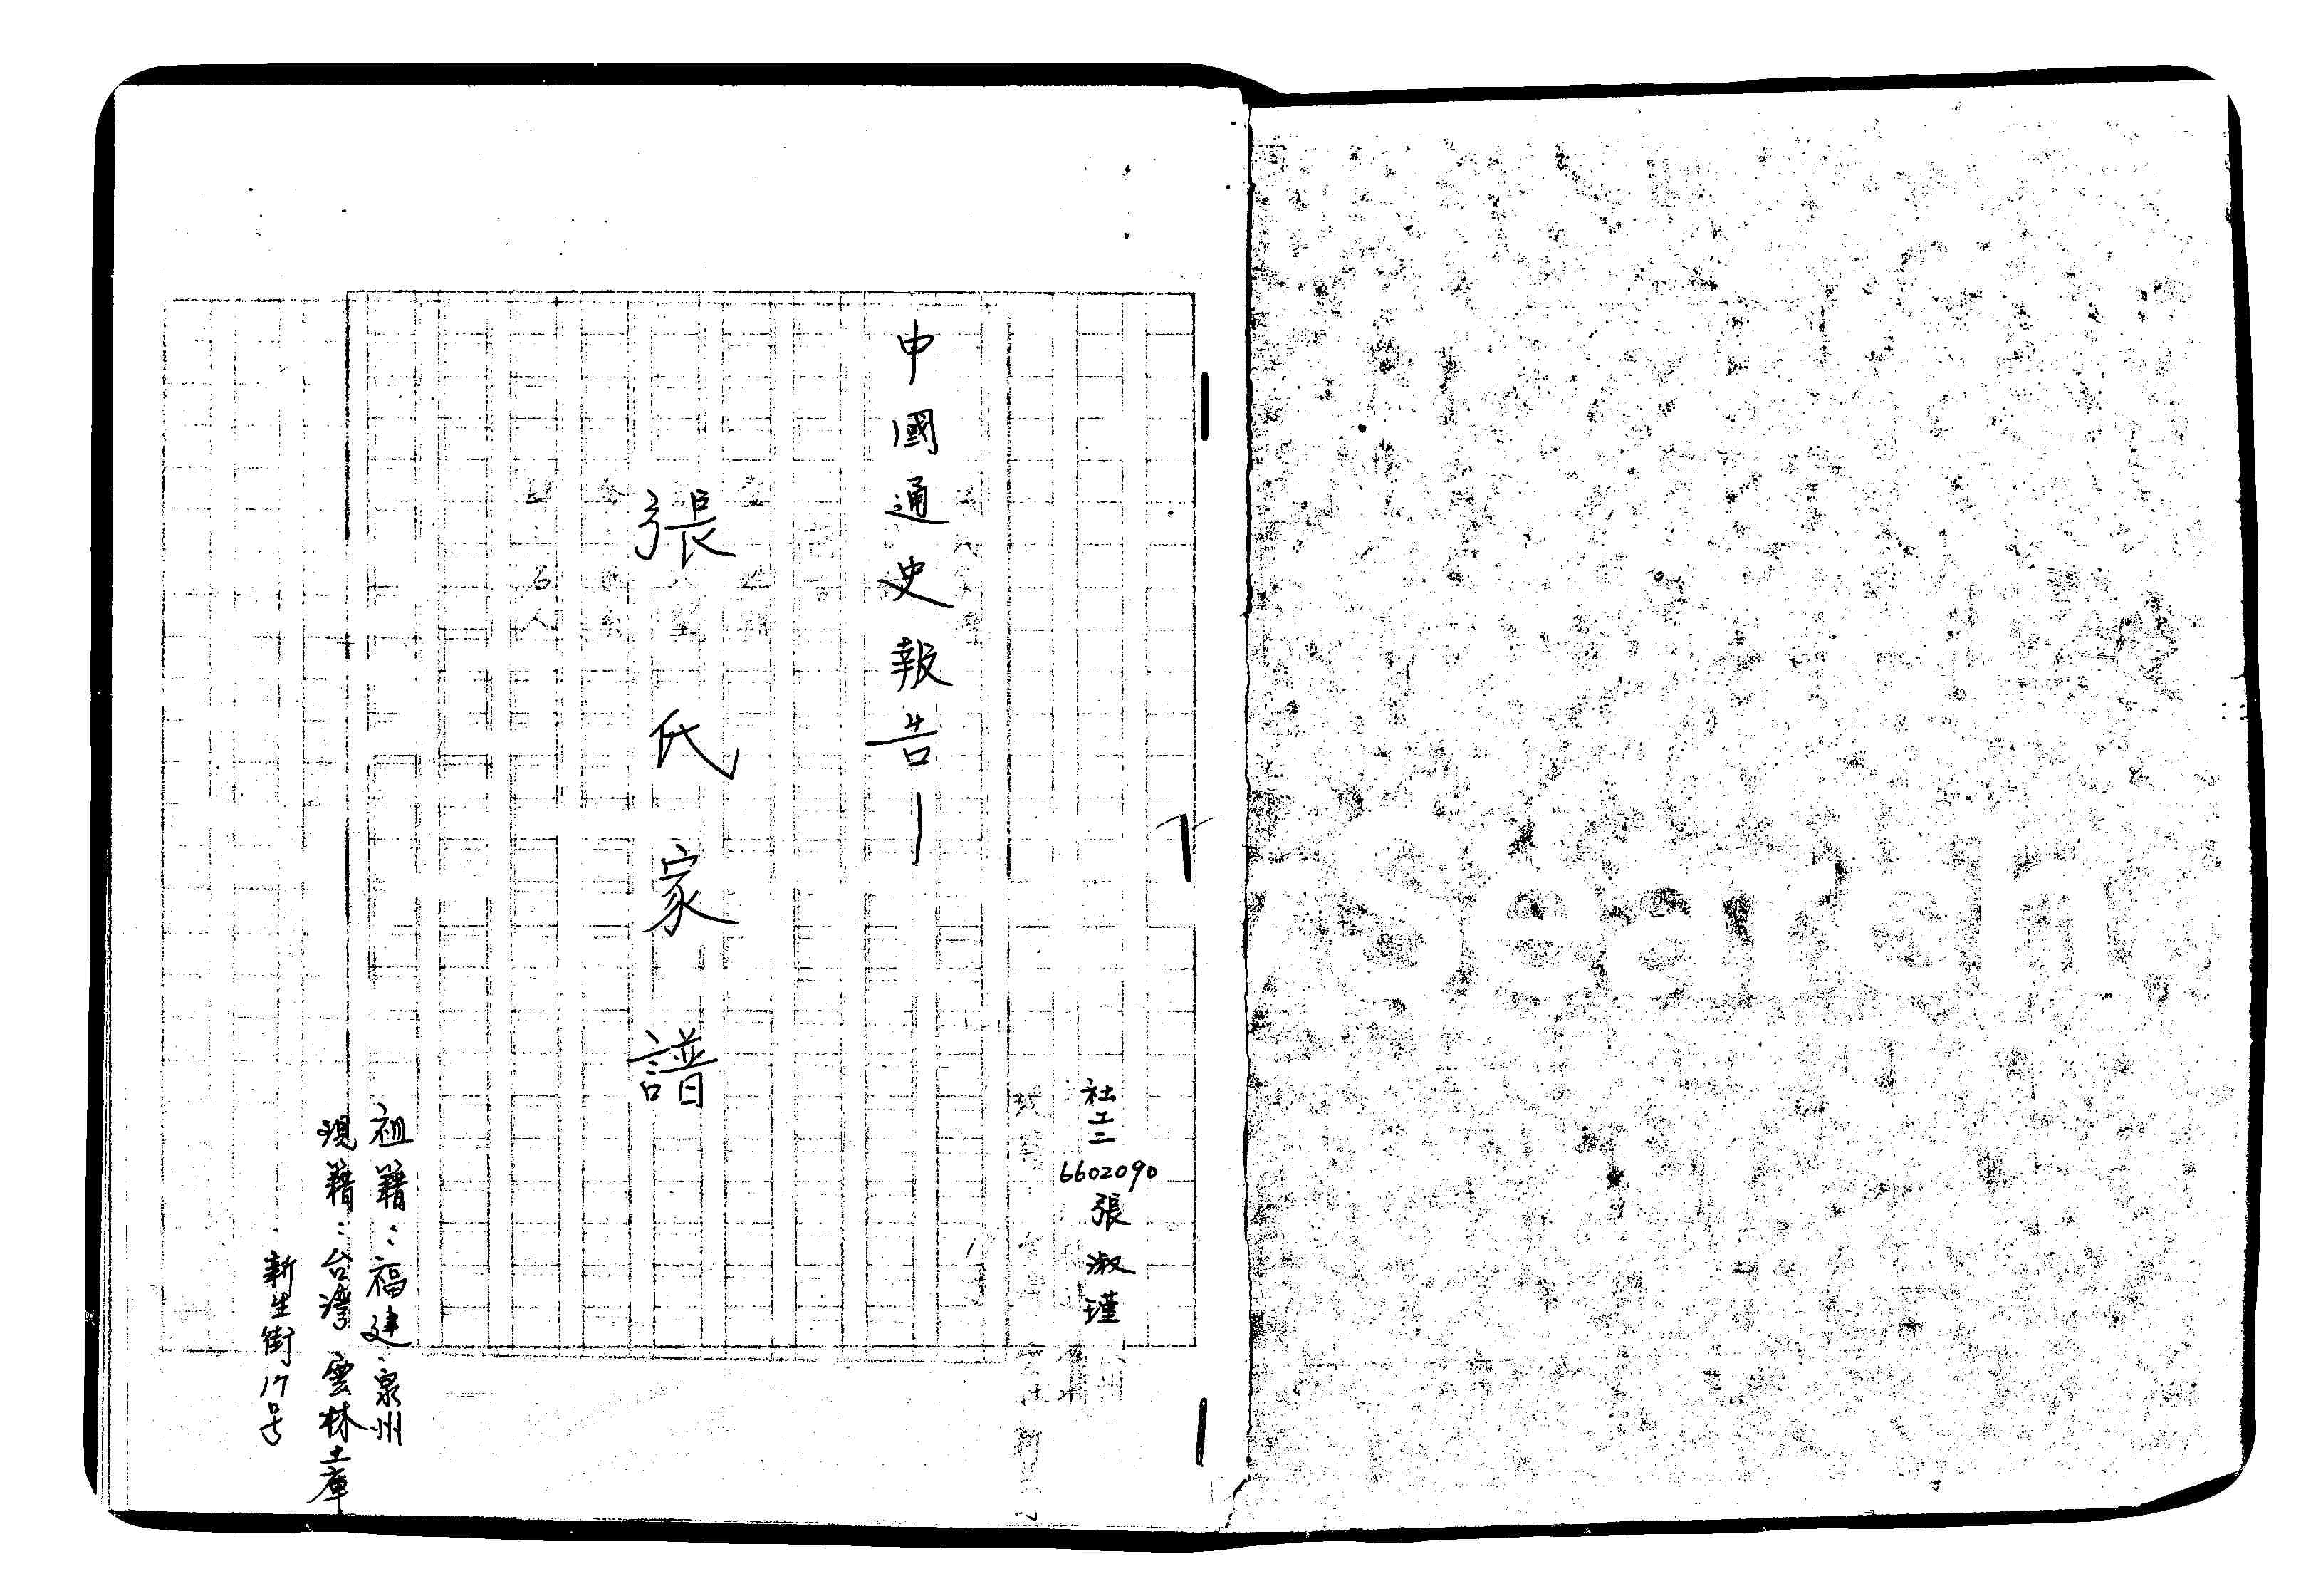 社工二 6602090 張淑瑾
中國通史報告—
張氏家譜
祖籍：福建泉州
現籍：台灣 雲林土庫
新生街17号